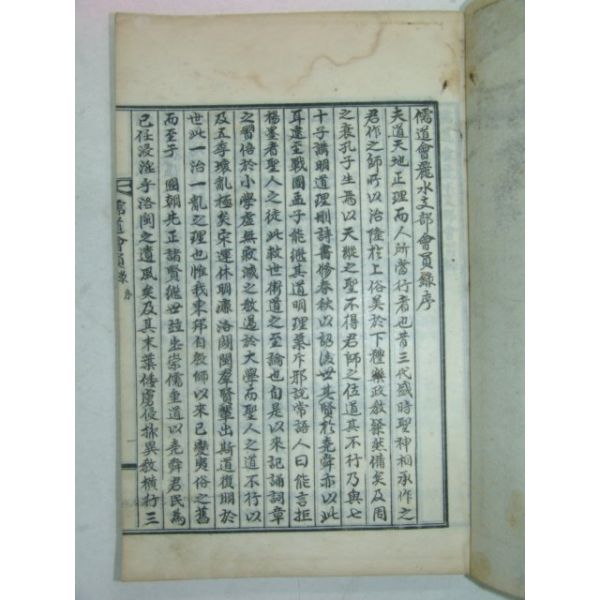 儒道會麗水支部會員錄序
夫道天地正理而人所當行者也昔三代盛時聖神相承作之
君作之師所以治隆於上俗美於下禮樂政教發然備矣及周
之衰孔子生焉以天縱之聖不得君師之位道其不行乃與七
十子講明道理刪詩書修春秋以詔後世其賢於堯舜亦以此
耳逮至戰國孟子能繼其道明理氣斥邪說常語人曰能言拒
楊墨者聖人之徒此救世衛道之至論也自是以來記誦詞章
之習倍於小學虛無寂滅之教過於大學而聖人之道不行以
及五季壞亂極矣宋運休明濂洛關閩羣賢輩出斯道復明於
世此一治一亂之理也惟我東邦自教師以來已變夷俗之舊
而至于 國朝先正諸賢繼世誼出崇儒重道以堯舜君民為
己任浸淫乎洛閩之遺風矣及其末葉倭虜侵掠異教橫行三
儒道會員錄 序